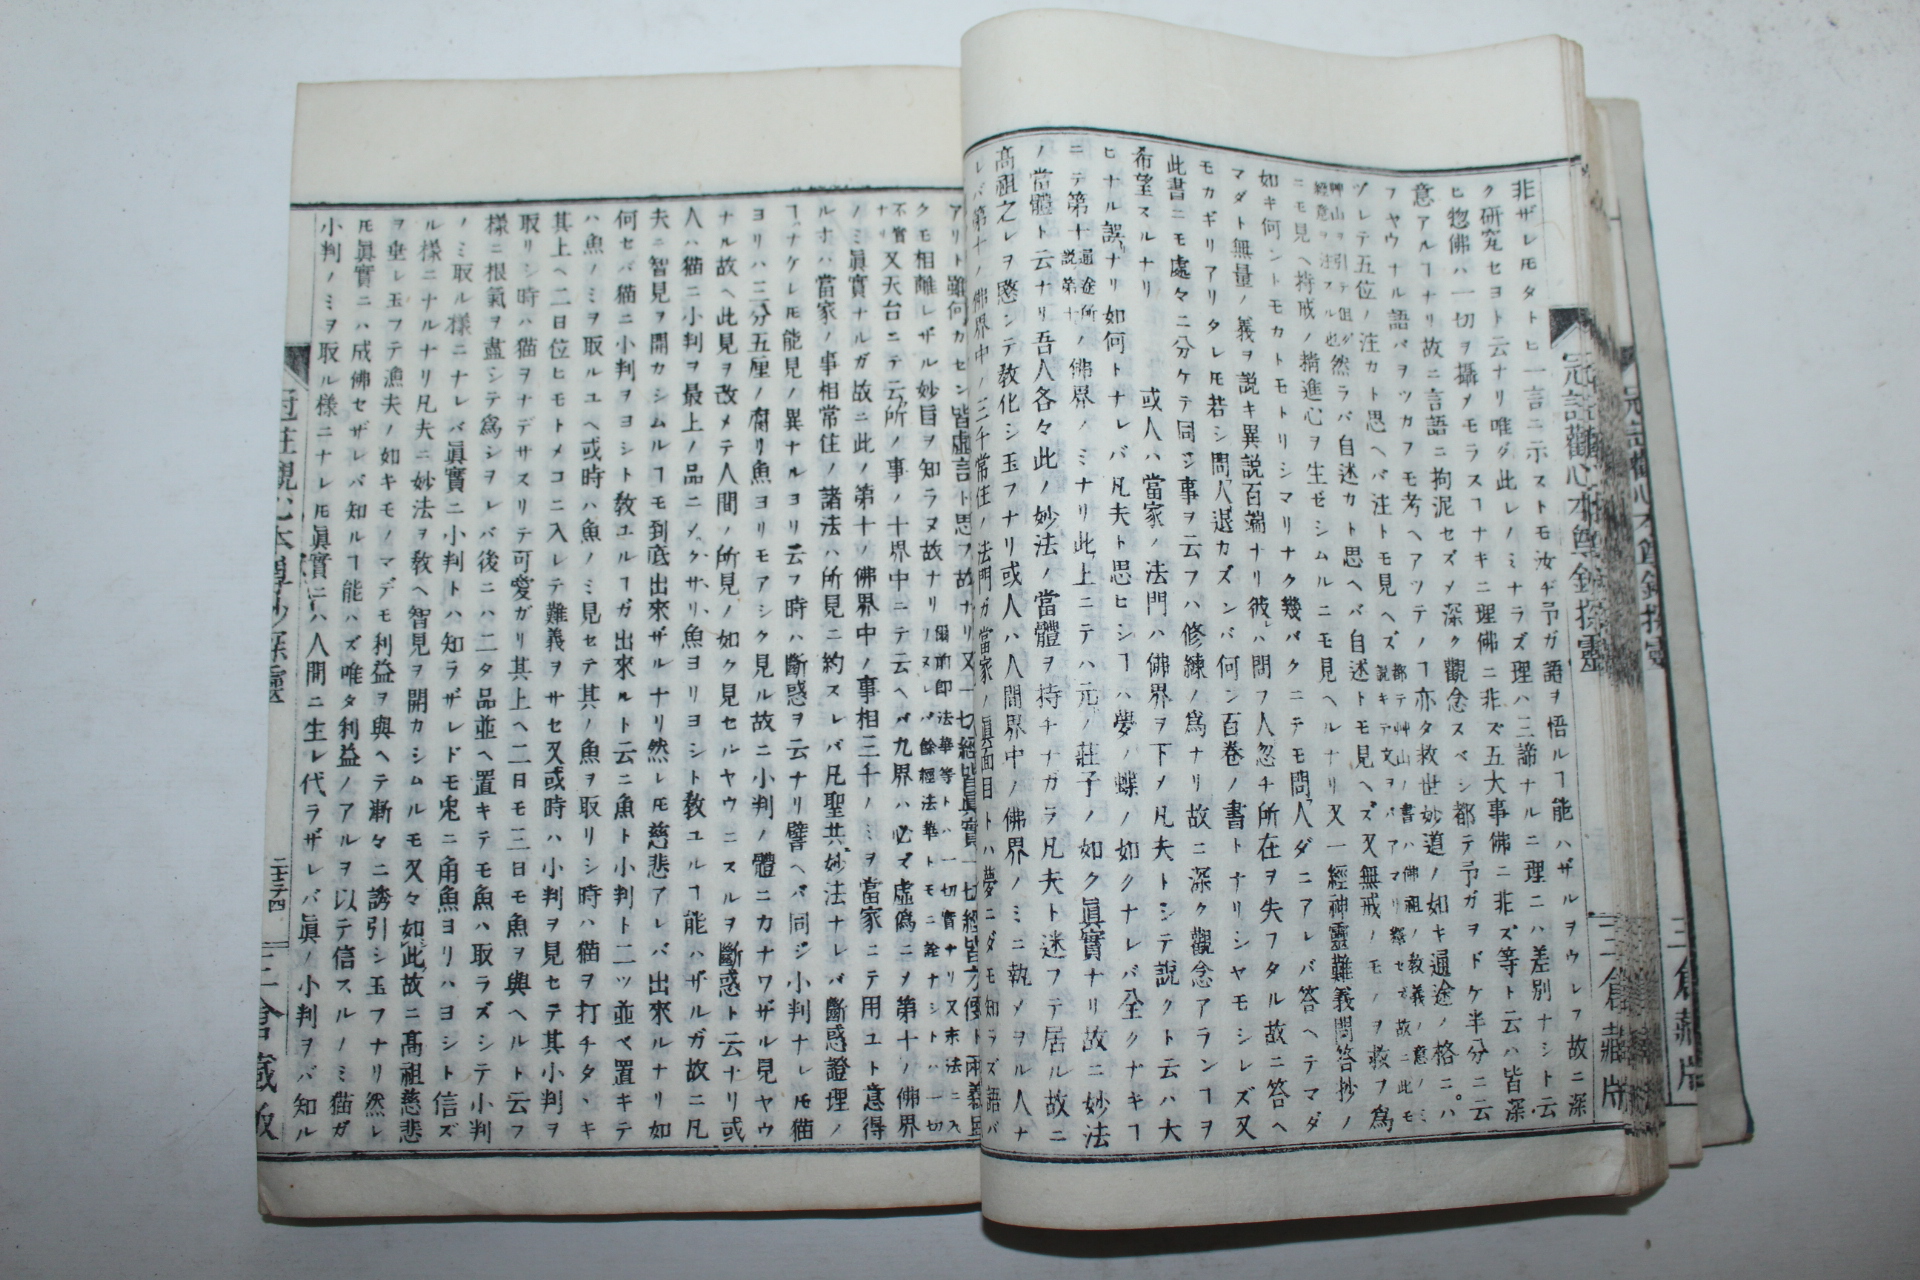 非ザレ𪜈タトヒ一言ニ示ストモ汝ヂ予ガ語ヲ悟ルヿ能ハザルヲウレフ故ニ深
ク研究セヨト云ナリ唯ダ此レノミナラズ理ハ三諦ナルニ理ニハ差別ナシト云
ヒ惣佛ハ一切ヲ攝メモラスヿナキニ理佛ニ非ズ五大事佛ニ非ズ等ト云ハ皆深
意アルヿナリ故ニ言語ニ拘泥セズメ深ク觀念スベシ都テ予ガヲドケ半分ニ云
フヤウナル語バヲツカフモ考ヘアツテノヿ亦タ救世妙道ノ如キ通途ノ格ニハ
ツレテ五位ノ注カト思ヘバ注トモ見ヘズ
然ラバ自述カト思ヘバ自述トモ見ヘズ又無戒ノモノヲ救フ爲
ニモ見ヘ持戒ノ精進心ヲ生ゼシムルニモ見ヘルナリ又一經神靈難義問答抄ノ
如キ何ントモカトモトリシマリナク幾バクニテモ問人ダニアレバ答ヘテマダ
マダト無量ノ義ヲ説キ異説百端ナリ彼ハ問フ人忽チ所在ヲ失フタル故ニ答ヘ
モカギリアリタレ𪜈若シ問人退カズンバ何ン百卷ノ書トナリシヤモシレズ又
此書ニモ處々ニ分ケテ同ジ事ヲ云フハ修練ノ爲ナリ故ニ深ク觀念アランヿヲ
希望スルナリ
或人ハ當家ノ法門ハ佛界ヲ下メ凡夫トシテ説クト云ハ大
ヒナル誤ナリ如何トナレバ凡夫ト思ヒシヿハ夢ノ蝶ノ如クナレバ全クナキヿ
ニテ第十ノ佛界ノミナリ此上ニテハ元ノ莊子ノ如ク眞實ナリ故ニ妙法
ノ當體ト云ナリ吾人各々此ノ妙法ノ當體ヲ持チナガラ凡夫ト迷フテ居ル故ニ
高祖之レヲ愍シテ教化シ玉フナリ或人ハ人間界中ノ佛界ノミニ執メヲル人ナ
レバ第十ノ佛界中ノ三千常住ノ法門ガ當家ノ眞面目トハ夢ニダモ知ラズ語バ
三倉藏版
アリト雖何カセン皆虚言ト思フ故ナリ又一切經皆眞實一切經皆方便ト兩義
クモ相離レザル妙旨ヲ知ラヌ故ナリ
又天台ニテ云所ノ事ノ十界中ニテ云ヘバ九界ハ必ズ虚僞ニメ第十ノ佛界
ノミ眞實ナルガ故ニ此ノ第十ノ佛界中ノ事相三千ノミヲ當家ニテ用ユト意得
ルナハ當家ノ事相常住ノ諸法ハ所見ニ約スレバ凡聖共妙法ナレバ斷惑證理ノ
ヿナケレ𪜈能見ノ異ナルヨリ云フ時ハ斷惑ヲ云ナリ譬ヘバ同ジ小判ナレ𪜈猫
ヨリハ三分五厘ノ腐リ魚ヨリモアシク見ル故ニ小判ノ體ニカナワザル見ヤウ
ナル故ヘ此見ヲ改メテ人間ノ所見ノ如ク見セルヤウニスルヲ斷惑ト云ナリ或
人ハ猫ニ小判ヲ最上ノ品ニメクサリ魚ヨリヨシト教ユルヿ能ハザルガ故ニ凡
夫ニ智見ヲ開カシムルヿモ到底出來ザルナリ然レ𪜈慈悲アレバ出來ルナリ如
何セバ猫ニ小判ヲヨシト教ユルヿガ出來ルト云ニ魚ト小判ト二ツ並ベ置キテ
ハ魚ノミヲ取ルユヘ或時ハ魚ノミ見セテ其ノ魚ヲ取リシ時ハ猫ヲ打チタヽキ
其上ヘ二日位ヒモトメコニ入レテ難義ヲサセ又或時ハ小判ヲ見セテ其小判ヲ
取リシ時ハ猫ヲナデサスリテ可愛ガリ其上ヘ二日モ三日モ魚ヲ與ヘルト云フ
樣ニ根氣ヲ盡シテ爲シヲレバ後ニハ二タ品並ヘ置キテモ魚ハ取ラズシテ小判
ノミ取ル樣ニナレバ眞實ニ小判トハ知ラザレドモ兎ニ角魚ヨリハヨシト信ズ
ル樣ニナルナリ凡夫ニ妙法ヲ教ヘ智見ヲ開カシムルモ又々如此故ニ高祖慈悲
ヲ垂レ玉フテ漁夫ノ如キモノマデモ利益ヲ與ヘテ漸々ニ誘引シ玉フナリ然レ
𪜈眞實ニハ成佛セザレバ知ルヿ能ハズ唯タ利益ノアルヲ以テ信スルノミ猫ガ
小判ノミヲ取ル樣ニナレ𪜈眞實ニハ人間ニ生レ代ラザレバ眞ノ小判ヲバ知ル